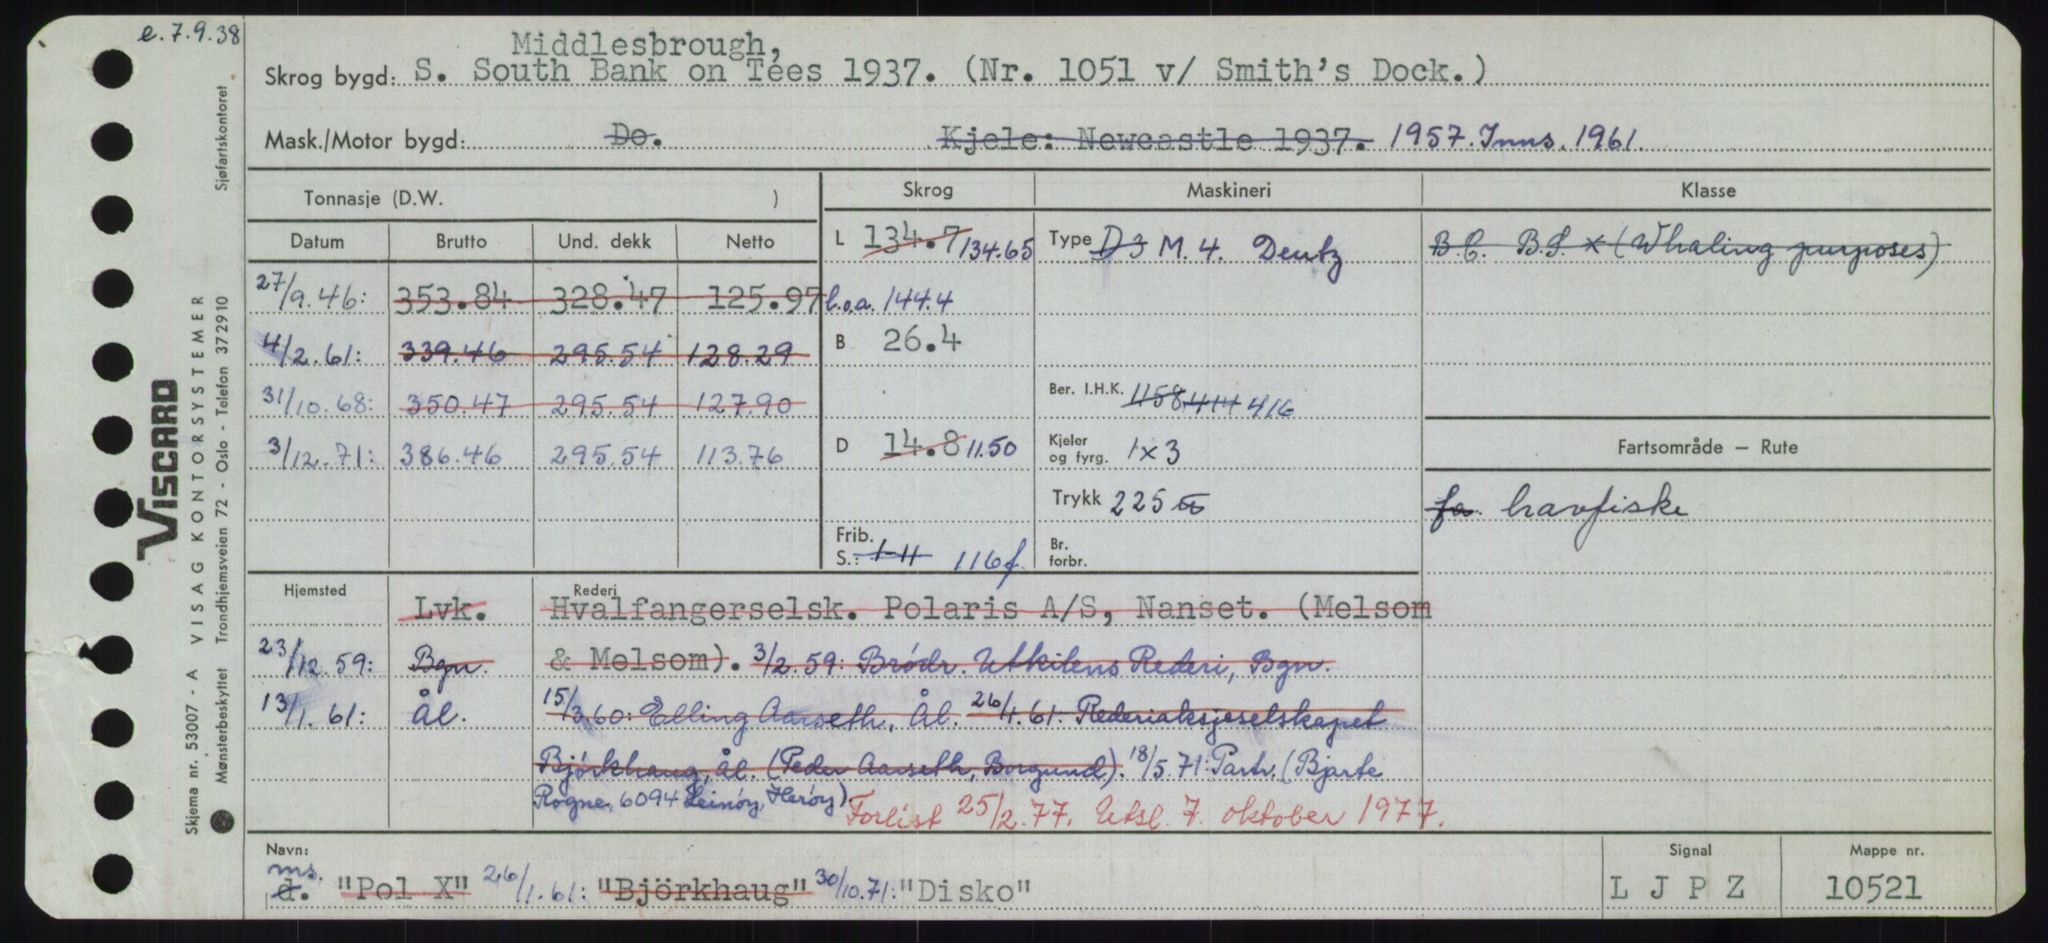 e. 7.9.38
Middlesbrough,
Skrog bygd: S. South Bank on Tees 1937. (Nr. 1051 v/ Smith's Dock.)
Mask./Motor bygd: Do. Kjele: Newcastle 1937. 1957. Inns. 1961.
Tonnasje (D.W. )
Datum Brutto Und. dekk Netto
27/9.46: 353.84 328.47 125.97
4/2.61: 339.46 295.54 128.29
31/10.68: 350.47 295.54 127.90
3/12.71: 386.46 295.54 113.76
Skrog
L 134.7 134.65
l.o.a. 144.4
B 26.4
D 14.8 11.50
Frib.
S.: 1-11 116f.
Maskineri
Type D3 M. 4. Deutz
Ber. I.H.K. 1158 414 416
Kjeler og fyrg. 1x3
Trykk 225 lb
Br. forbr.
Klasse
B.C. B.S. x (Whaling purposes)
Fartsområde – Rute
fa. havfiske
Hjemsted Rederi
Lvk. Hvalfangerselsk. Polaris A/S, Nanset. (Melsom
23/12.59: Bgn. & Melsom). 3/2.59: Brødr. Utkilens Rederi, Bgn.
13/1.61: Ål. 15/3.60: Elling Aarseth, Ål. 26/1.61: Rederiaksjeselskapet
Bjørkhaug, Ål. (Peder Aarseth, Borgund). 18/5.71: Partr. (Bjarte
Rogne, 6094 Leinöy, Heröy) Forlist 25/2.77. Utsl. 7. oktober 1977.
Navn:
ms.
d. "Pol X" 26/1.61: "Björkhaug" 30/10.71: "Disko"
Signal
L J P Z
Mappe nr.
10521
VISCARD
Skjema nr. 53007 - A VISAG KONTORSYSTEMER
Mønsterbeskyttet Trondhjemsveien 72 - Oslo - Telefon 372910 Sjøfartskontoret